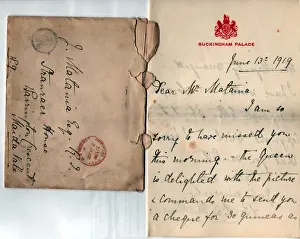 F. Matania Esq. R.I.
Stanraer House
Warrington Crescent
Maida Vale
BUCKINGHAM PALACE
June 13th 1919
Dear Mr Matania
I am so
sorry to have missed you
this morning. the Queen
is delighted with the picture
& commands me to send you
a cheque for 30 guineas as